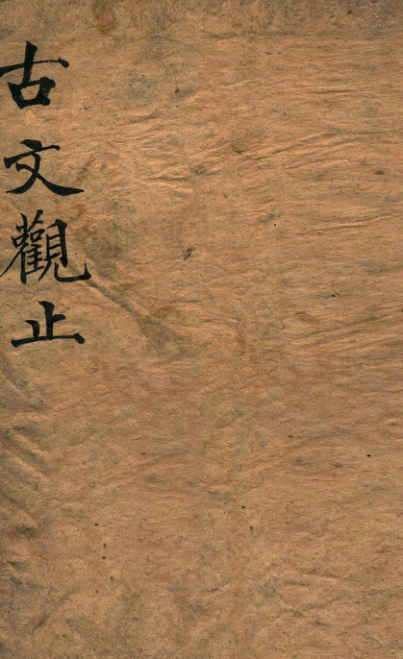 古文觀止